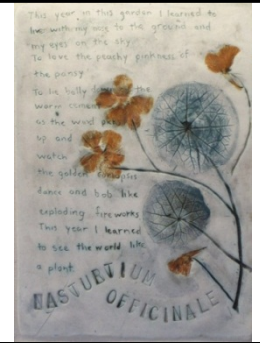 This year in this garden I learned to
live with my nose to the ground and
my eyes on the sky
To love the peachy pinkness of
the pansy
To be the
warm
as the word
up and
watch
the golden
dance and bob like
exploding fireworks
This year I learned
to see the world like
a plant
NASTURTIUM
OFFICINALE